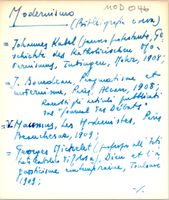 MOD 046
Modernismo
(Bibliografia cora)
= Johannes Kübel (pauro protestante), Ge
schichte des Katholischen Mo
dernismus, Tubingen, Mohr, 1909;
= J. Bourdeau, Pragmatisme et
modernisme, Paris, Alcan, 1908;
Raccolti gli articoli pubblicati
sul "Journal des Débats"
= Maumus, Les Modernistes, Paris
Beauchesne, 1909;
= Georges Michelet (prof
Dieu et l'a
gnosticisme contemporaine, Toulouse
1909;